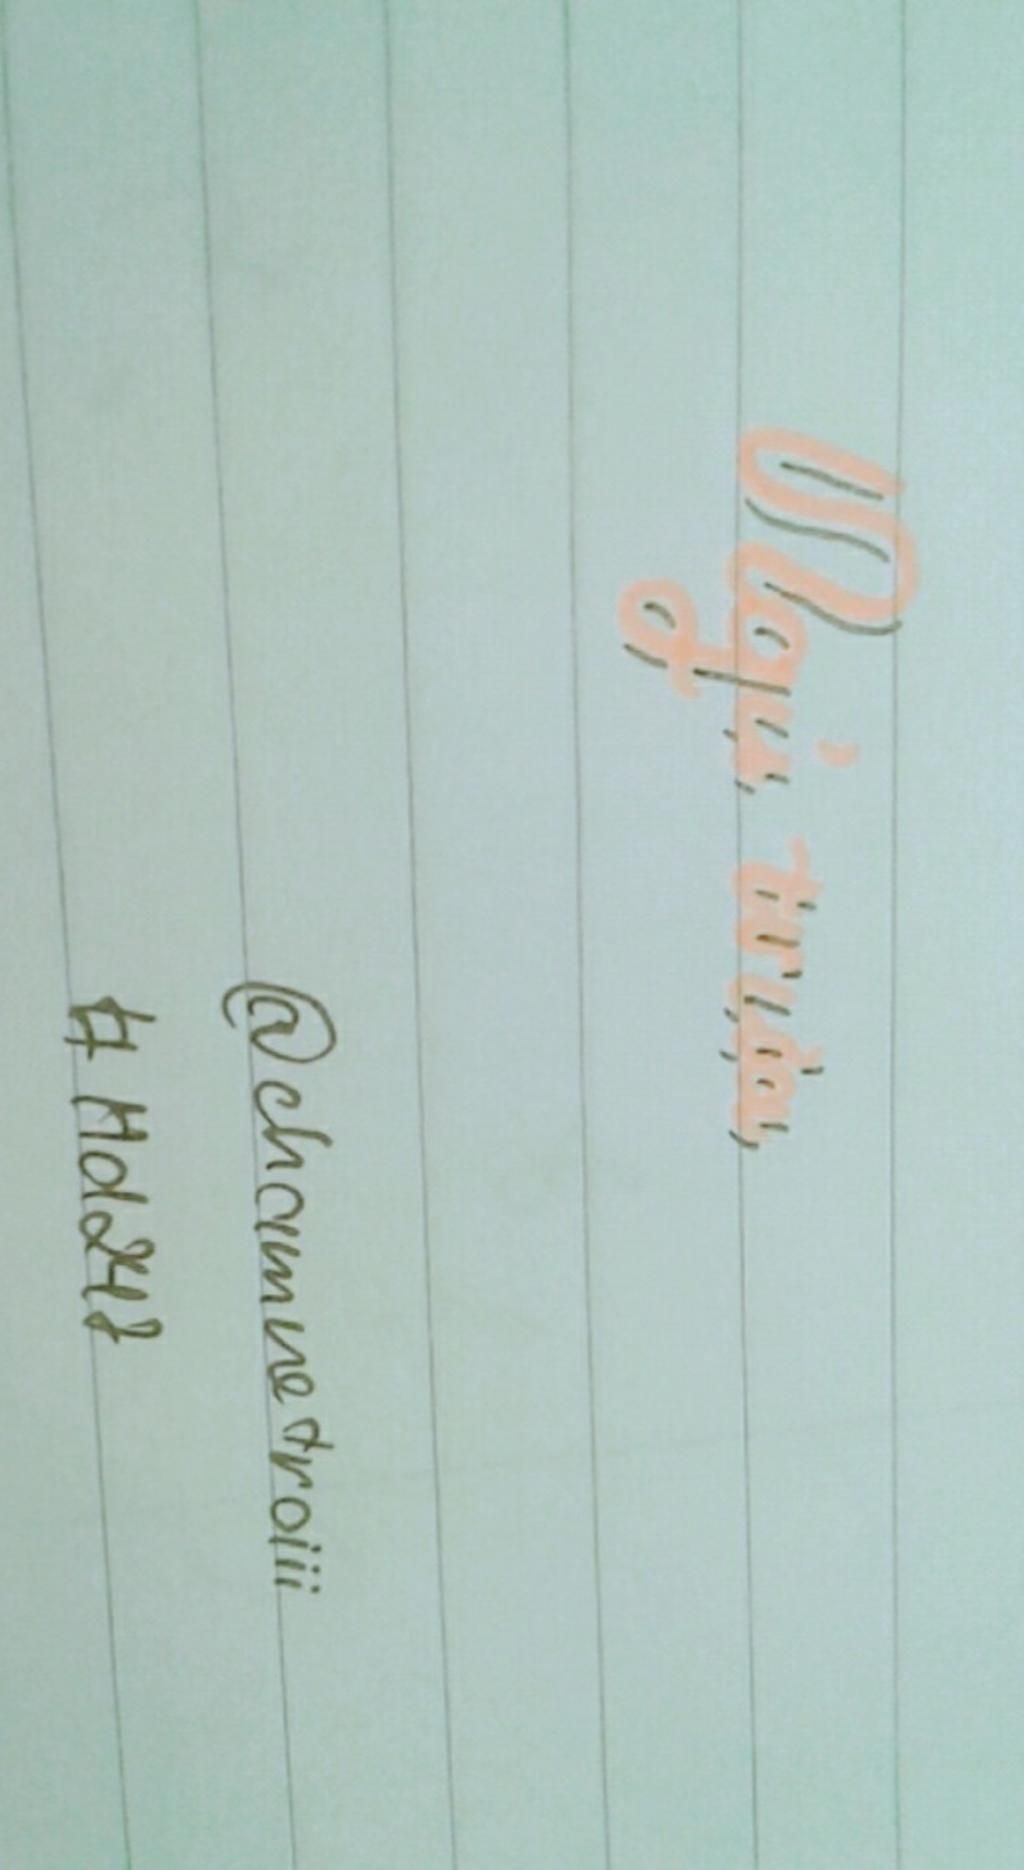 Ngủ trưa
@chamnetroiii
#Hd248